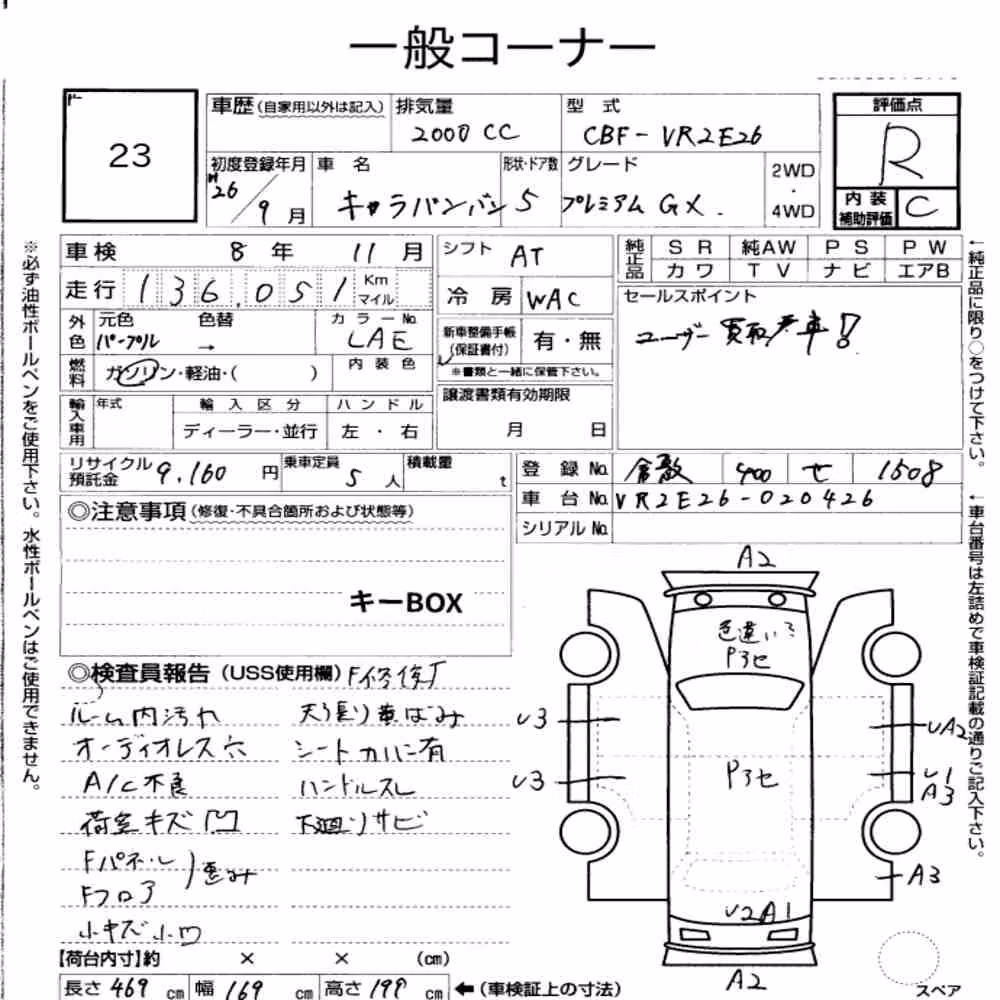 一般コーナー
23
車歴 (自家用以外は記入) 排気量 型 式 評価点
2000 CC CBF-VR2E26 R
初度登録年月 車 名 形状・ドア数 グレード 2WD・4WD 内装補助評価 C
H26/9月 キャラバンバン 5 プレミアム GX.
車検 8 年 11 月 シフト AT 純正品 SR 純AW PS PW
カワ TV ナビ エアB
走行 136,051 Km マイル 冷 房 WAC セールスポイント
ユーザー買取車!
外色 元色 色替 カラーNo. 新車整備手帳 (保証書付) 有・無
パープル → LAE ※書類と一緒に保管下さい。
燃料 ガソリン・軽油・( ) 内装色 譲渡書類有効期限
月 日
輸入車用 年式 輸入区分 ハンドル
ディーラー・並行 左・右
リサイクル預託金 9,160 円 乗車定員 5 人 積載量 t
登録No. 倉敷 400 せ 1508
車台No. VR2E26-020426
シリアルNo.
◎注意事項 (修復・不具合箇所および状態等)
キーBOX
◎検査員報告 (USS使用欄) F修復
ルーム内汚れ 天張り黄ばみ
オーディオレス穴 シートカバー有
A/C不良 ハンドルスレ
荷室キズ凹 下廻りサビ
Fパネル
Fフロア 歪み
小キズ小凹
【荷台内寸】約 × × (cm)
長さ 469 cm 幅 169 cm 高さ 199 cm ←(車検証上の寸法)
A2
色違い?
P3セ
U3
UA2
U3
P3セ
U1
A3
A3
U2A1
A2
スペア
※必ず油性ボールペンをご使用下さい。水性ボールペンはご使用できません。
←純正品に限り○をつけて下さい。
←車台番号は左詰めで車検証記載の通りご記入下さい。